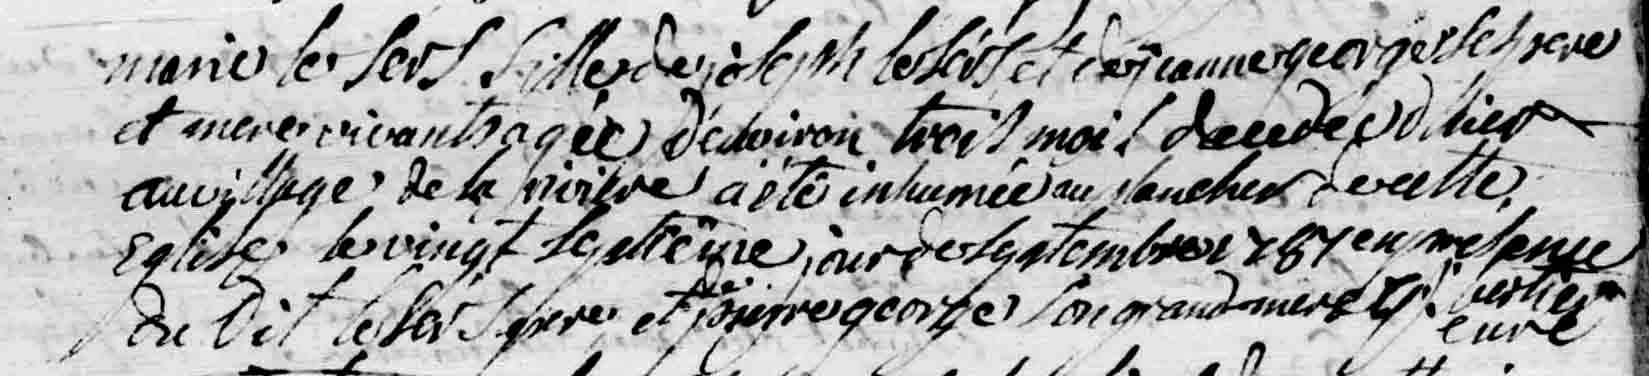 marie le sers fille de joseph le sers et de jeanne george ses pere
et mere vivants agée d'environ trois mois decedée d'hier
au village de la riviere a été inhumée au plancher de cette
Eglise le vingt septième jour de septembre 1787 en presence
du dit le sers pere et de pierre george son grand mere
curé